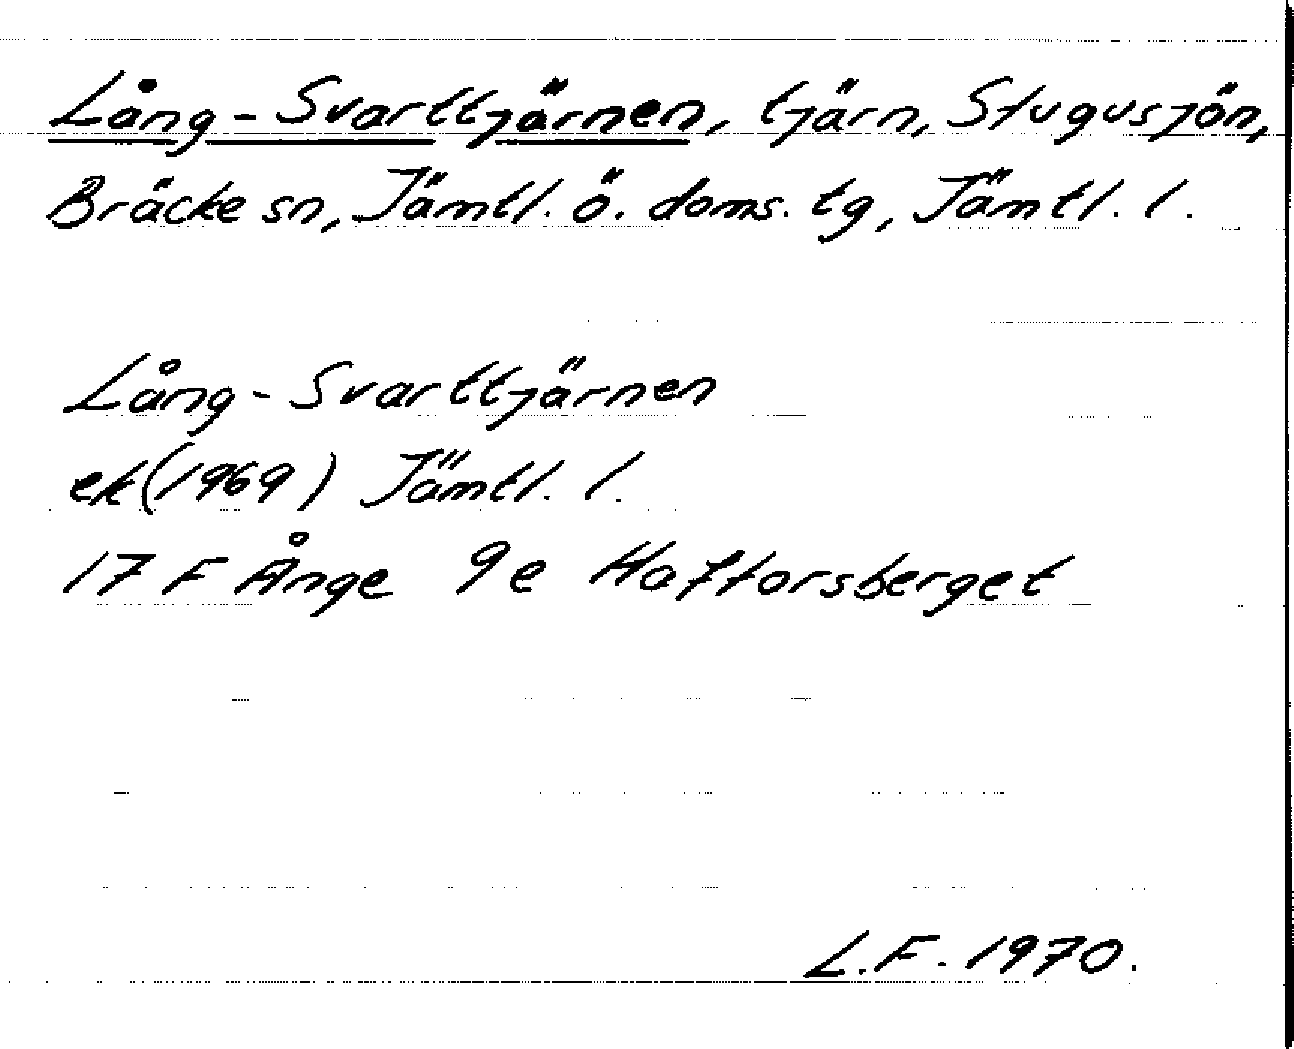 Lång-Svarttjärnen, tjärn, Stugusjön,
Bräcke sn, Jämtl. ö. doms. tg, Jämtl. l.
Lång-Svarttjärnen
ek (1969) Jämtl. l.
17 F Ånge 9e Haftorsberget
L.F. 1970.